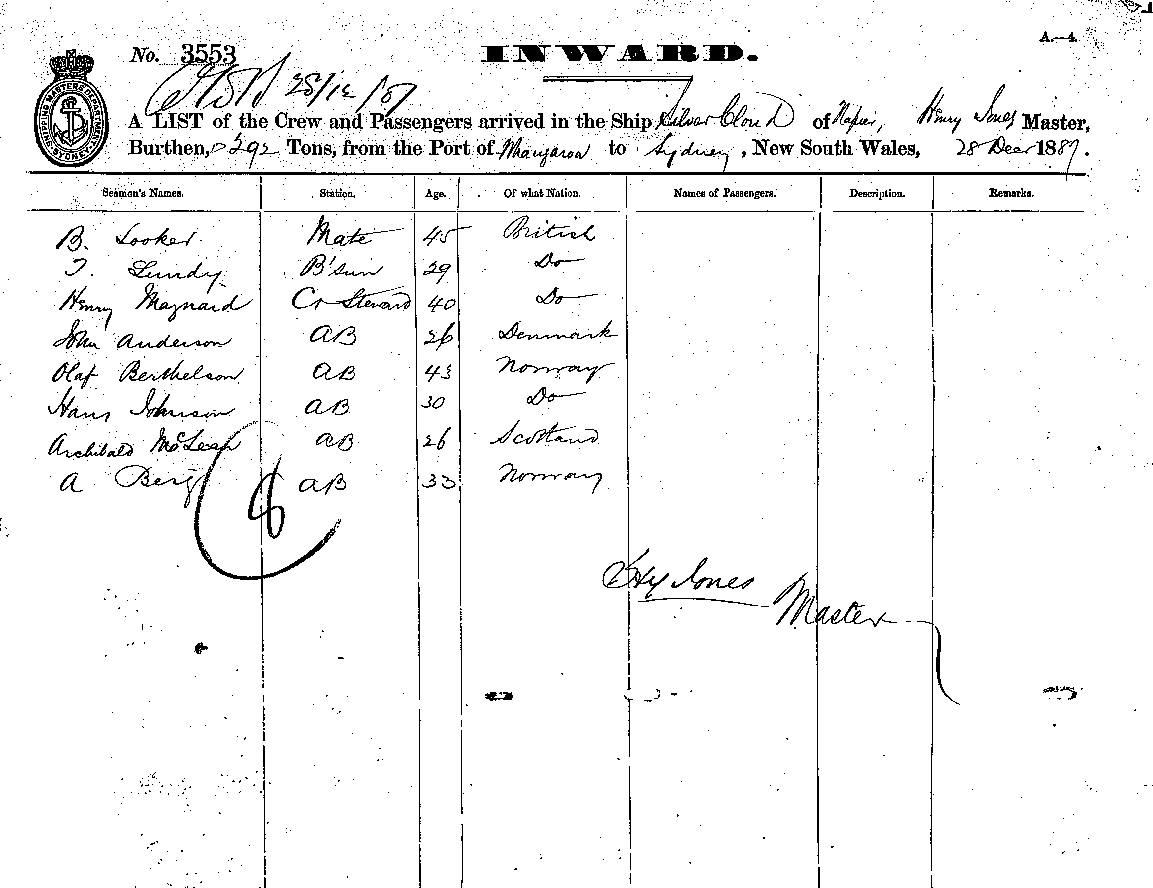 No. 3553
INWARD.
A.—4.
28/12/87
A LIST of the Crew and Passengers arrived in the Ship Silver Cloud of Napier, Henry Jones Master,
Burthen, 292 Tons, from the Port of to Sydney, New South Wales, 28 Decr 1887.
SHIPPING MASTERS DEPARTMENT SYDNEY
Seamen's Names. Station. Age. Of what Nation. Names of Passengers. Description. Remarks.
B. Looker Mate 45 British
T. Lundy B'sun 29 Do
Henry Maynard Ck Steward 40 Do
John Anderson AB 26 Denmark
Olaf Berthelson AB 43 Norway
Hans Johnson AB 30 Do
Archibald McLean AB 26 Scotland
A Berg AB 33 Norway
8
Hy Jones
Master